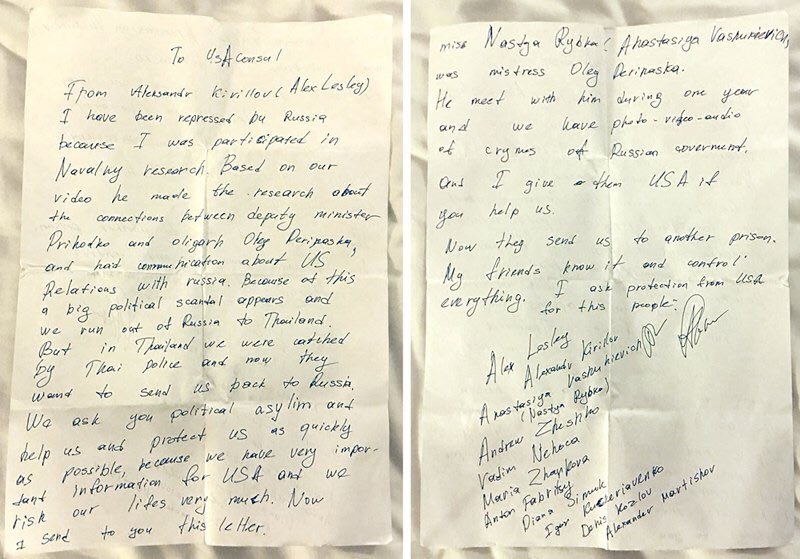 To USA Consul
From Aleksandr Kirillov (Alex Lesley)
I have been repressed by Russia
because I was participated in
Navalny research. Based on our
video he made the research about
the connections between deputy minister
Prihodko and oligarh Oleg Deripaska,
and had communication about US
Relations with russia. Because of this
a big political scantal appears and
we run out of Russia to Thailand.
But in Thailand we were catched
by Thai Police and now they
want to send us back to Russia.
We ask you political asylim and
help us and protect us as quickly
as possible, because we have very impor-
tant information for USA and we
risk our lifes very much. Now
I send to you this letter.
miss Nastya Rybka ( Anastasiya Vashukievich,
was mistress Oleg Deripaska.
He meet with him during one year
and we have photo-video-audio
of crymes of Russian goverment.
and I give them USA if
you help us.
Now they send us to another prison.
My friends know it and control
everything. I ask protection from USA
for this people:
Alex Lesley
Alexandr Kirillov
Anastasiya Vashukievich
(Nastya Rybka)
Andrew
Vadim Nehoca
Maria Zharkova
Anton Fabritsy
Diana Simuk
Igor
Denis Kozlov
Alexander Martishov